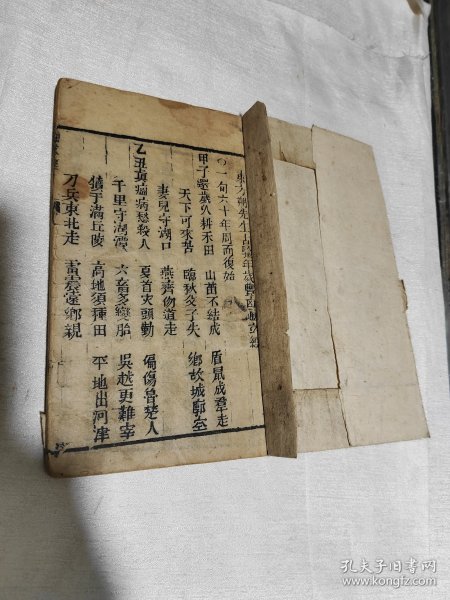 先生占驗年歲豐
〇一旬六十年周而復始
甲子 歲久耕禾田 山苗不結成 鼠成羣走
天下可來苦 臨秋 子失 鄉故城郭空
妻兒守湖口 燕齊 道走
乙丑真瘟病愁殺人 夏首災頭動 偏傷魯楚人
千里守湖 六畜多變胎 吳越更難宰
犢子滿丘陵 高地須種田 平地出河津
刀兵東北走 雷震遠鄉親
孔夫子旧书网
www.kongfz.com